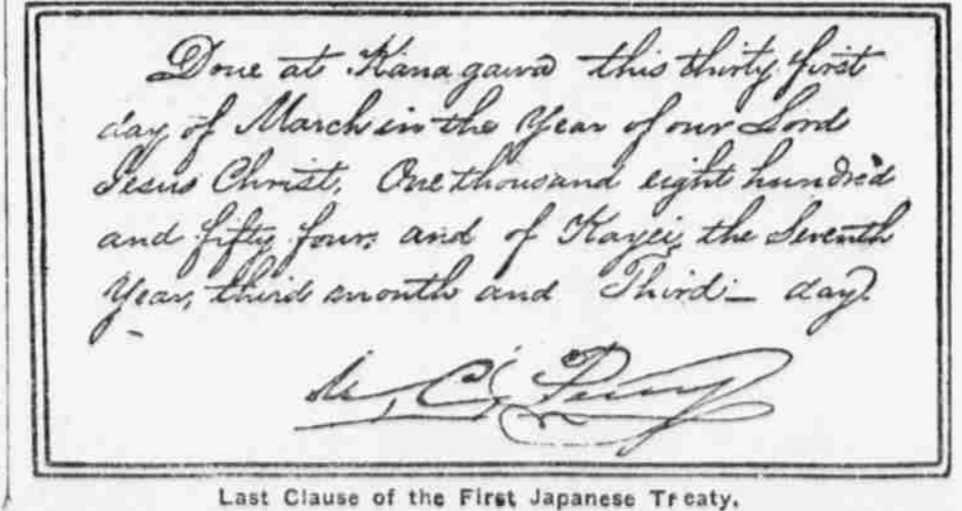 Done at Kanagawa this thirty first
day of March in the Year of our Lord
Jesus Christ, One thousand eight hundred
and fifty four, and of Kayei, the Seventh
Year, third month and Third day.
M. C. Perry
Last Clause of the First Japanese Treaty.